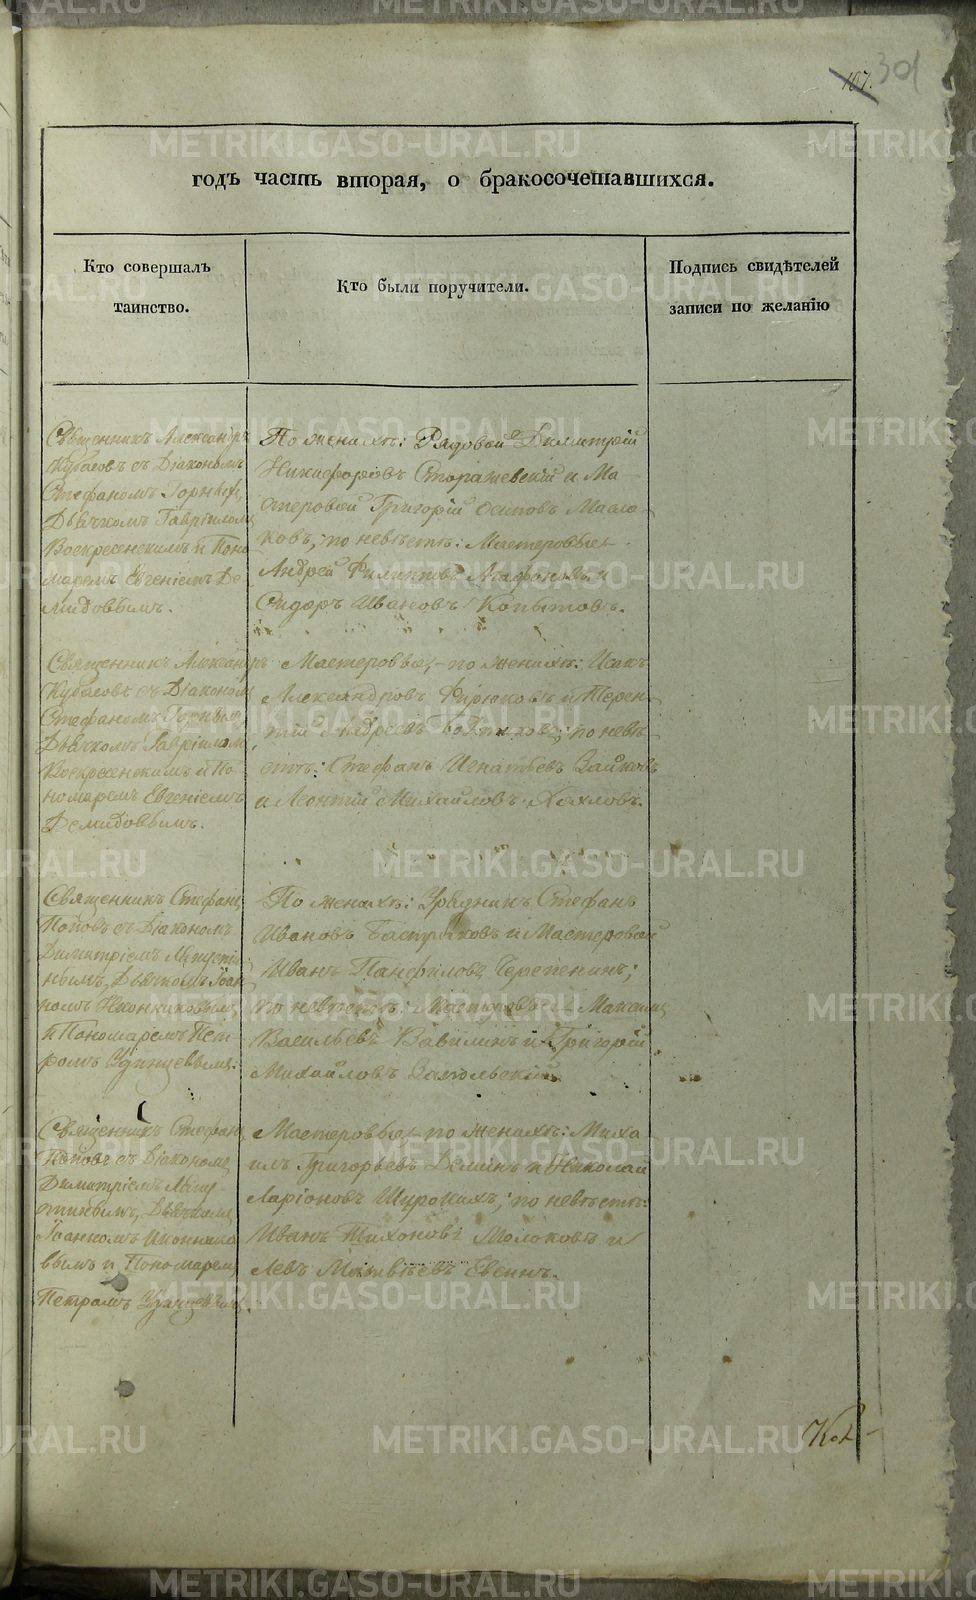 107. 301
годъ часть вторая, о бракосочетавшихся.
Кто совершалъ
таинство.
Кто были поручители.
Подпись свидѣтелей
записи по желанію
Священникъ Александръ
Кубасовъ съ Діакономъ
Стефаномъ Горныхъ,
Дьячкомъ Гавріиломъ
Воскресенскимъ и Поно
маремъ Евгеніемъ Де
мидовымъ.
По женихѣ: Рядовой Димитрій
Никифоровъ Сторажевскій и Ма
стеровой Григорій Осиповъ Масла
ковъ, по невѣстѣ: Мастеровые
Андрей Филиповъ Агафоновъ и
Сидоръ Ивановъ Копытовъ.
Священникъ Александръ
Кубасовъ съ Діакономъ
Стефаномъ Горныхъ,
Дьячкомъ Гавріиломъ
Воскресенскимъ и По
номаремъ Евгеніемъ
Демидовымъ.
Мастеровые, по женихѣ: Исакъ
Александровъ Фирюковъ и Терен
тій Андреевъ по невѣ
стѣ: Стефанъ Игнатьевъ Зайковъ
и Леонтій Михайловъ Хохловъ.
Священникъ Стефанъ
Поповъ съ Діакономъ
Димитріемъ Мичу
нымъ, Дьячкомъ Іоан
номъ Иконниковымъ
и Пономаремъ Пет
ромъ Удинцевымъ.
По женихѣ: Урядникъ Стефанъ
Ивановъ Бастриковъ и Мастеровой
Иванъ Панфиловъ Черепенинъ;
по невѣстѣ: Мастеровые Максимъ
Васильевъ Вавилинъ и Григорій
Михайловъ Запольскій.
Священникъ Стефанъ
Поповъ съ Діакономъ
Димитріемъ
Дьячкомъ
Іоанномъ Иконнико
вымъ и Пономаремъ
Петромъ Удинцевымъ.
Мастеровые, по женихѣ: Миха
илъ Григорьевъ Деминъ и Николай
Ларіоновъ Широкихъ, по невѣстѣ:
Иванъ Тихоновъ Молоковъ и
Левъ Матвѣевъ Евенъ.
METRIKI.GASO-URAL.RU